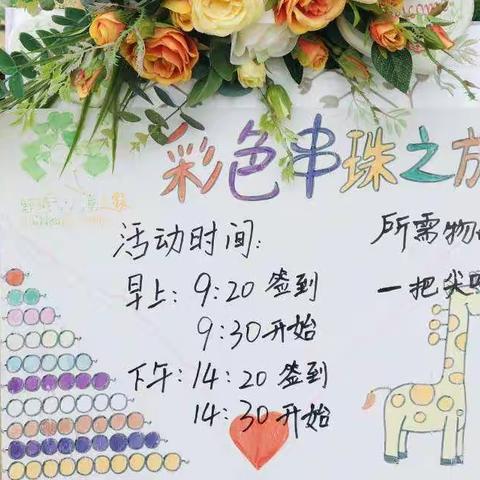 彩色串珠之旅
活动时间:
早上: 9:20 签到
9:30 开始
下午: 14:20 签到
14:30 开始
所需物
一把尖